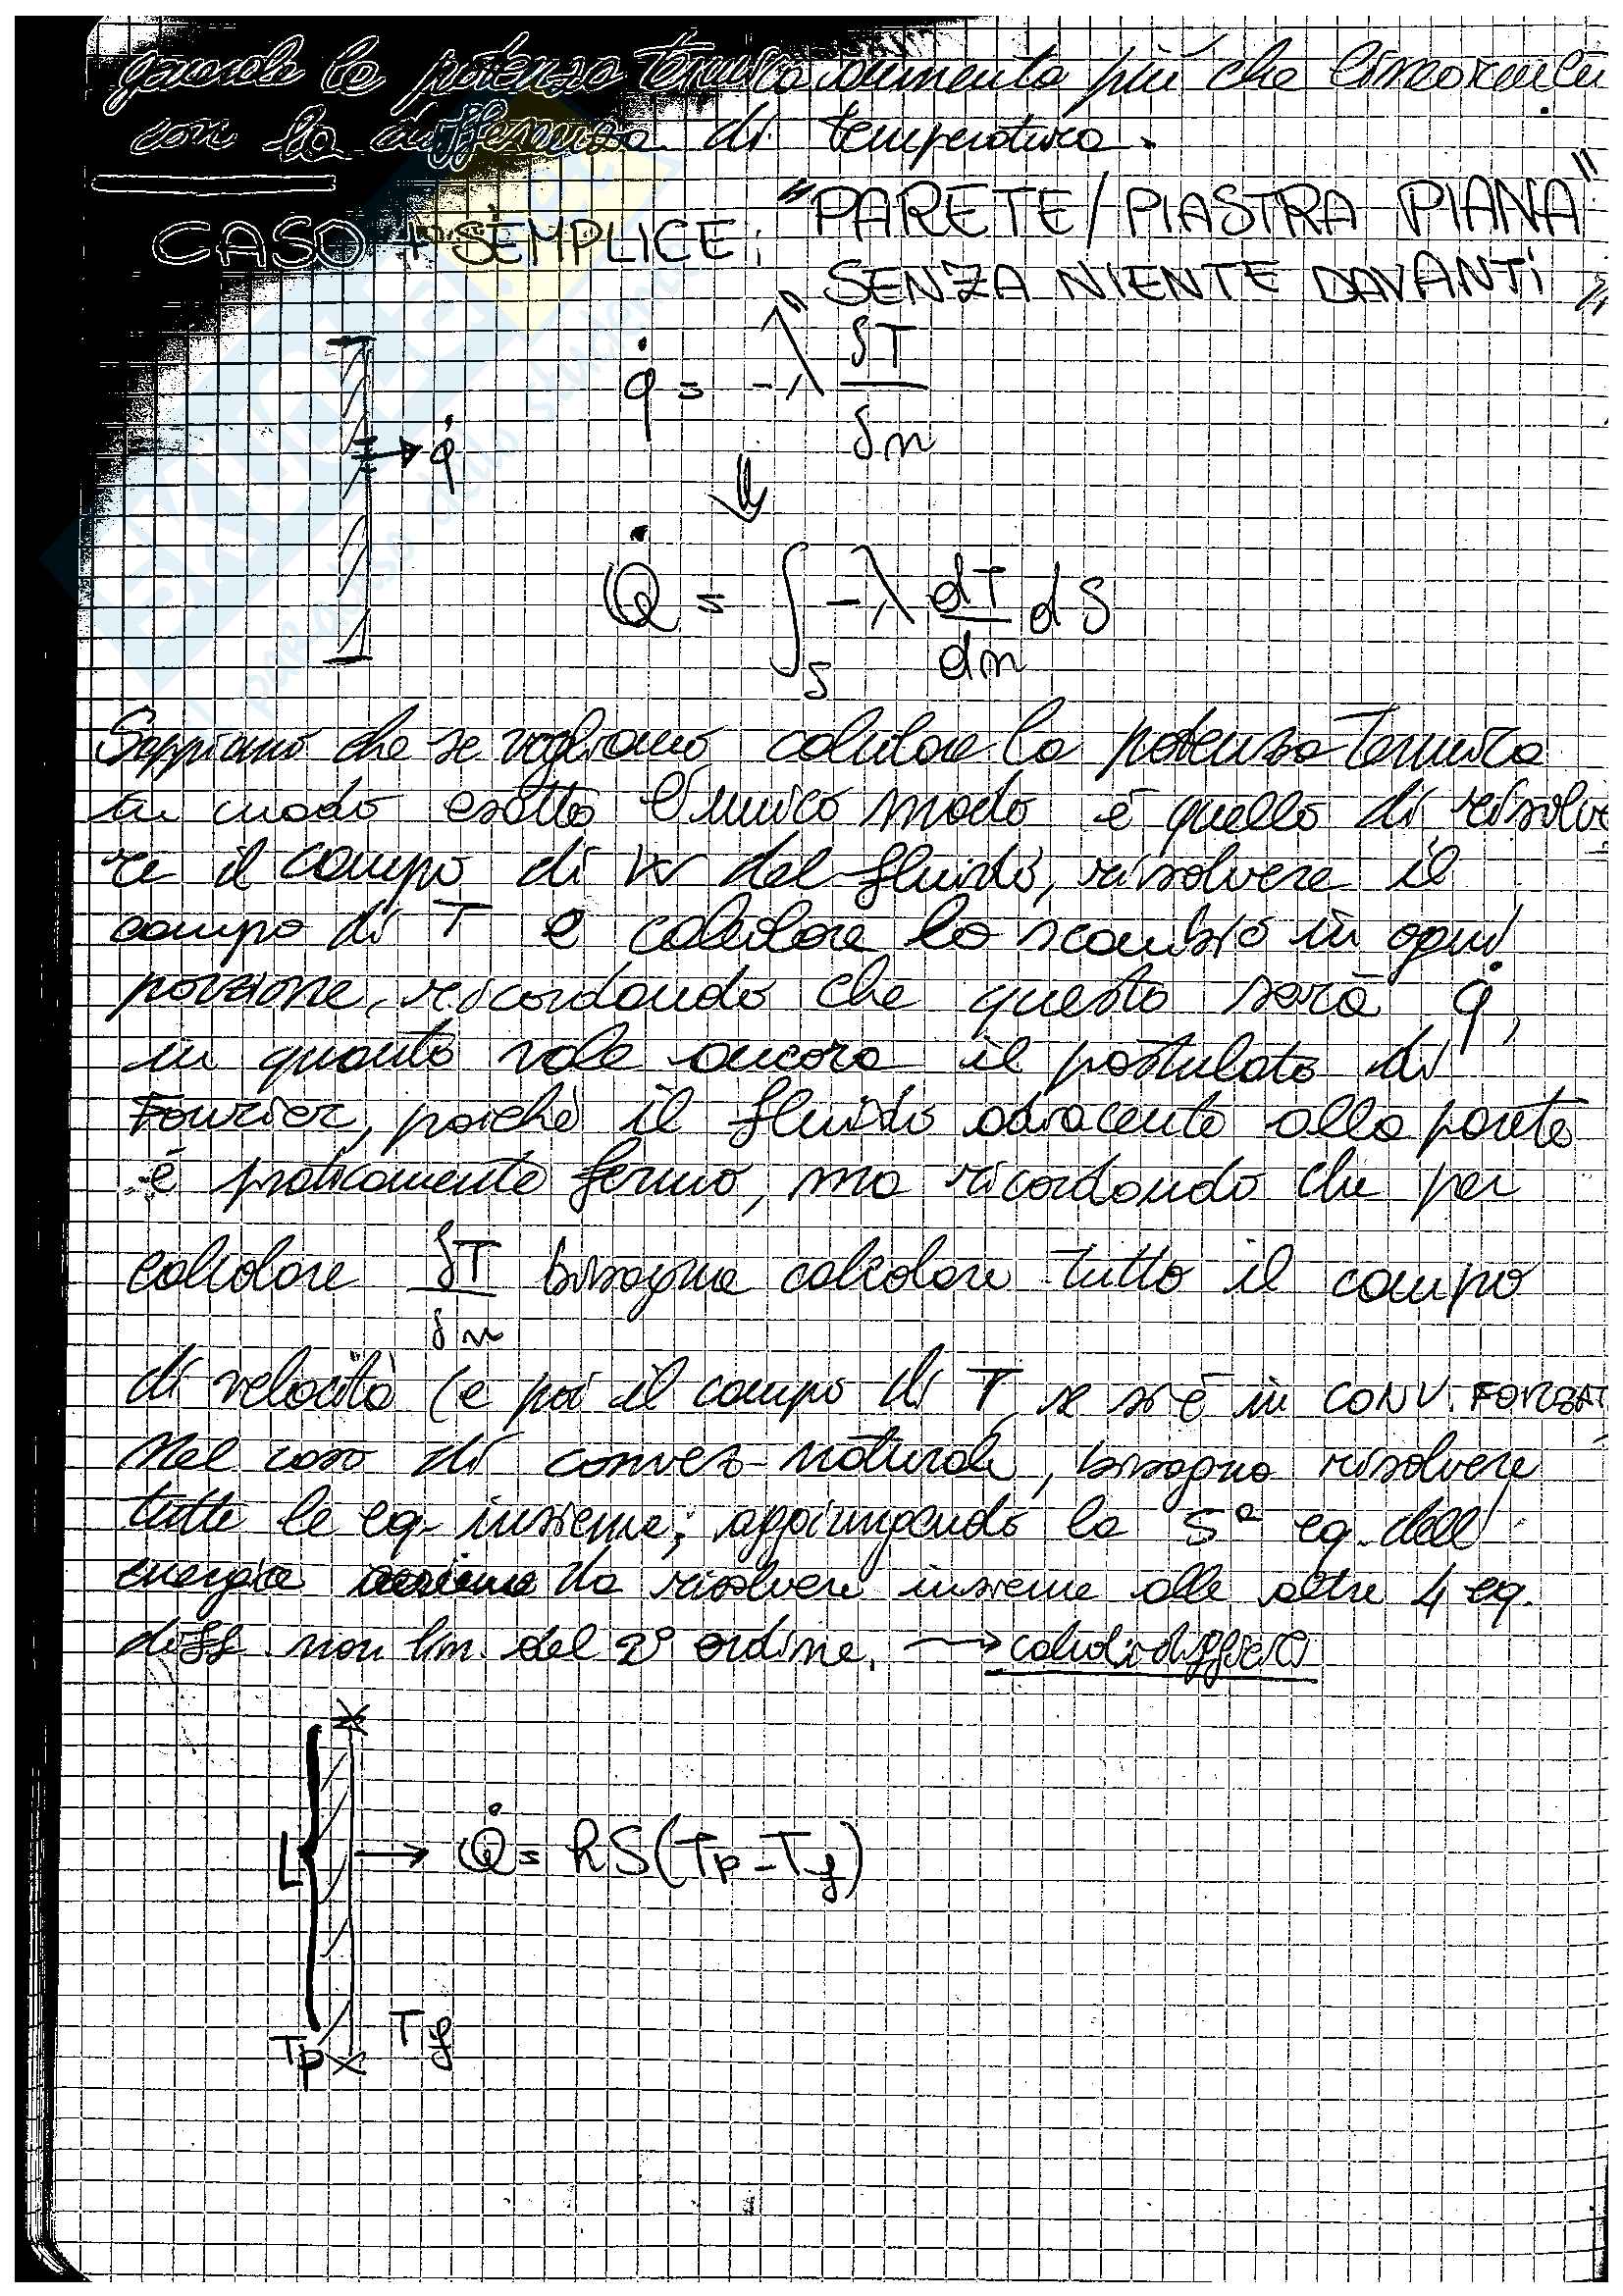 la potenza termica aumenta più che linearmen
con la differenza di temperatura.
CASO + SEMPLICE: "PARETE/PIASTRA PIANA"
"SENZA NIENTE DAVANTI"
q̇ = -λ δT/δn
q̇
⇓
Q̇ = ∫_S -λ dT/dn dS
Sappiamo che se vogliamo calcolare la potenza Termica
in modo esatto l'unico modo è quello di risolve
re il campo di w del fluido, risolvere il
campo di T e calcolare lo scambio in ogni
porzione, ricordando che questo sarà q̇,
in quanto vale ancora il postulato di
Fourier, poiché il fluido adiacente alla parete
è praticamente fermo, ma ricordando che per
calcolare δT/δn bisogna calcolare tutto il campo
di velocità (e poi il campo di T se si è in CONV. FORZAT
Nel caso di convez naturale, bisogna risolvere
tutte le eq. insieme, aggiungendo la 5ª eq. dell'
energia da risolvere insieme alle altre 4 eq.
diff. non lin. del 2° ordine. → calcoli difficili
L → Q̇ = hS(Tp - Tf)
Tp Tf